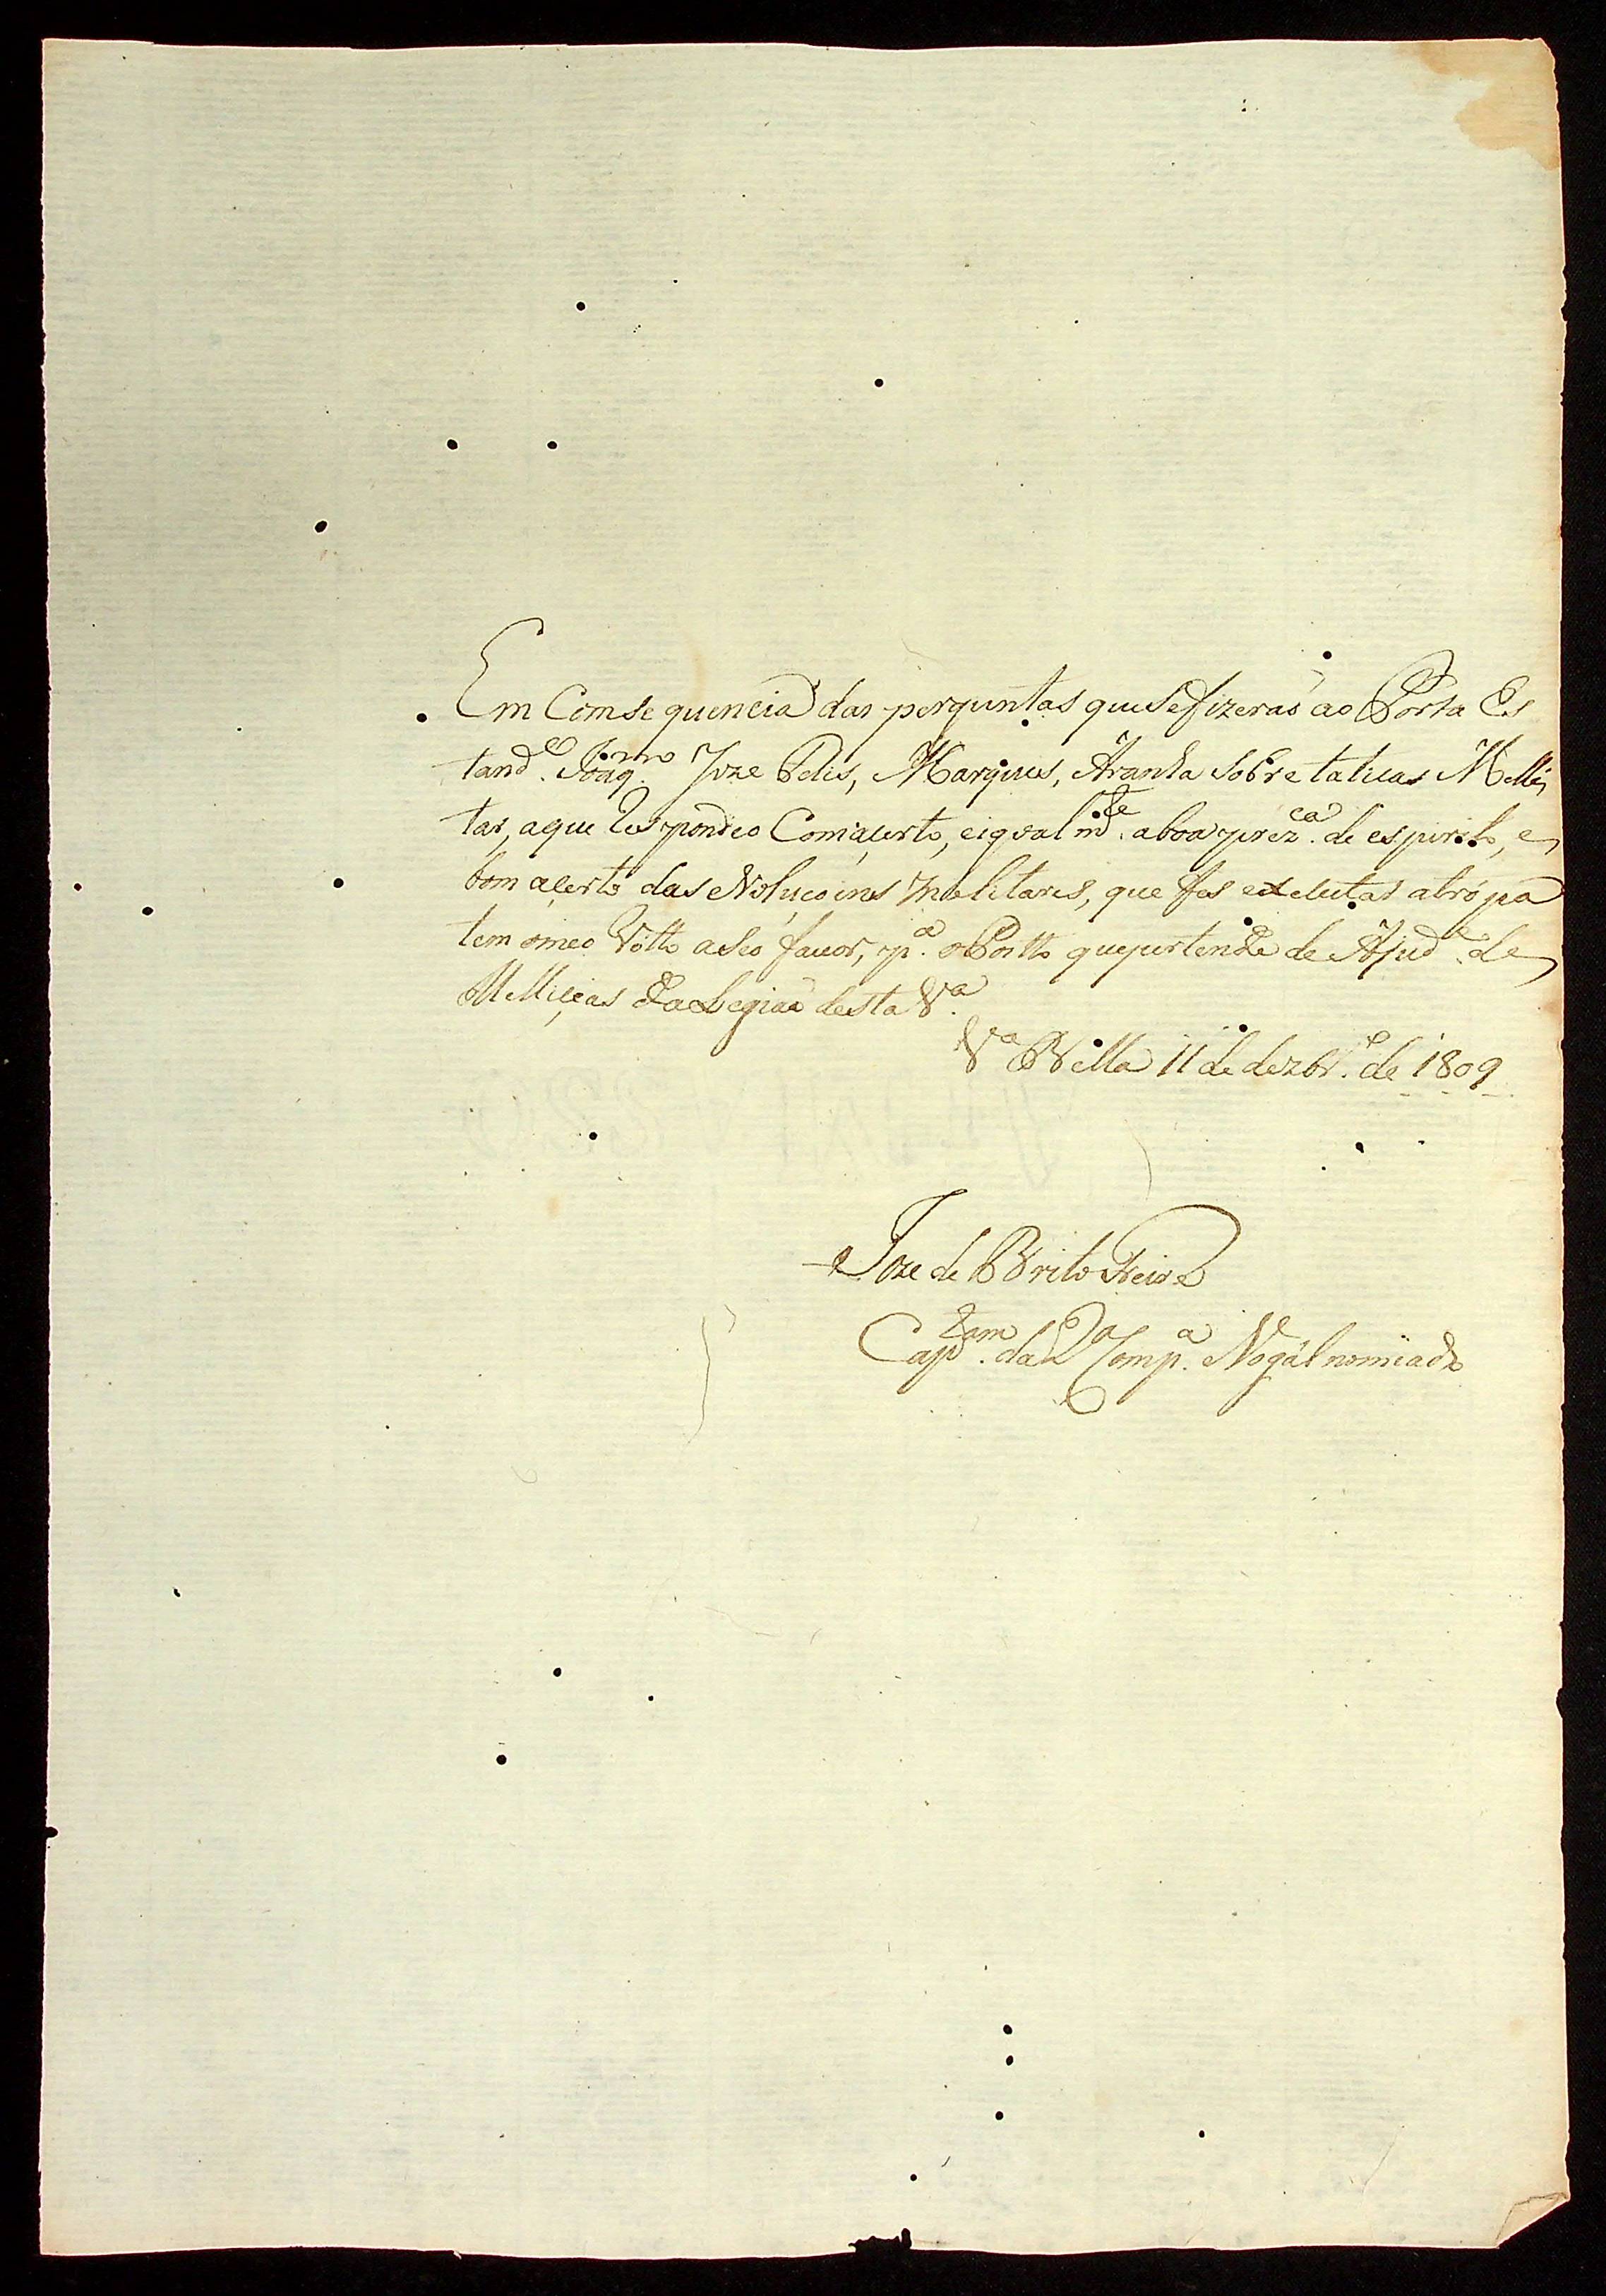 Em Comse quencia das perguntas que Se fizeraõ ao Porta Es
tand.e Joaq.m Joze Marques, Aranha Sobre taticas Melli
tar, aque Respondeo Com açerto, eigoal m.te aboa prez.ca de espirito, e
bom açerto das evolucoins melitares, que fes exzecutar atropa
tem omeo Votto aSeo favor, p.a oPostto que pertende de Ajud.e de
Melliçias da Legiaõ desta V.a
V.a Bella 11 de dezbr.o de 1809
Joze de Brito Freire
Cap.tam da 2.a Comp.a